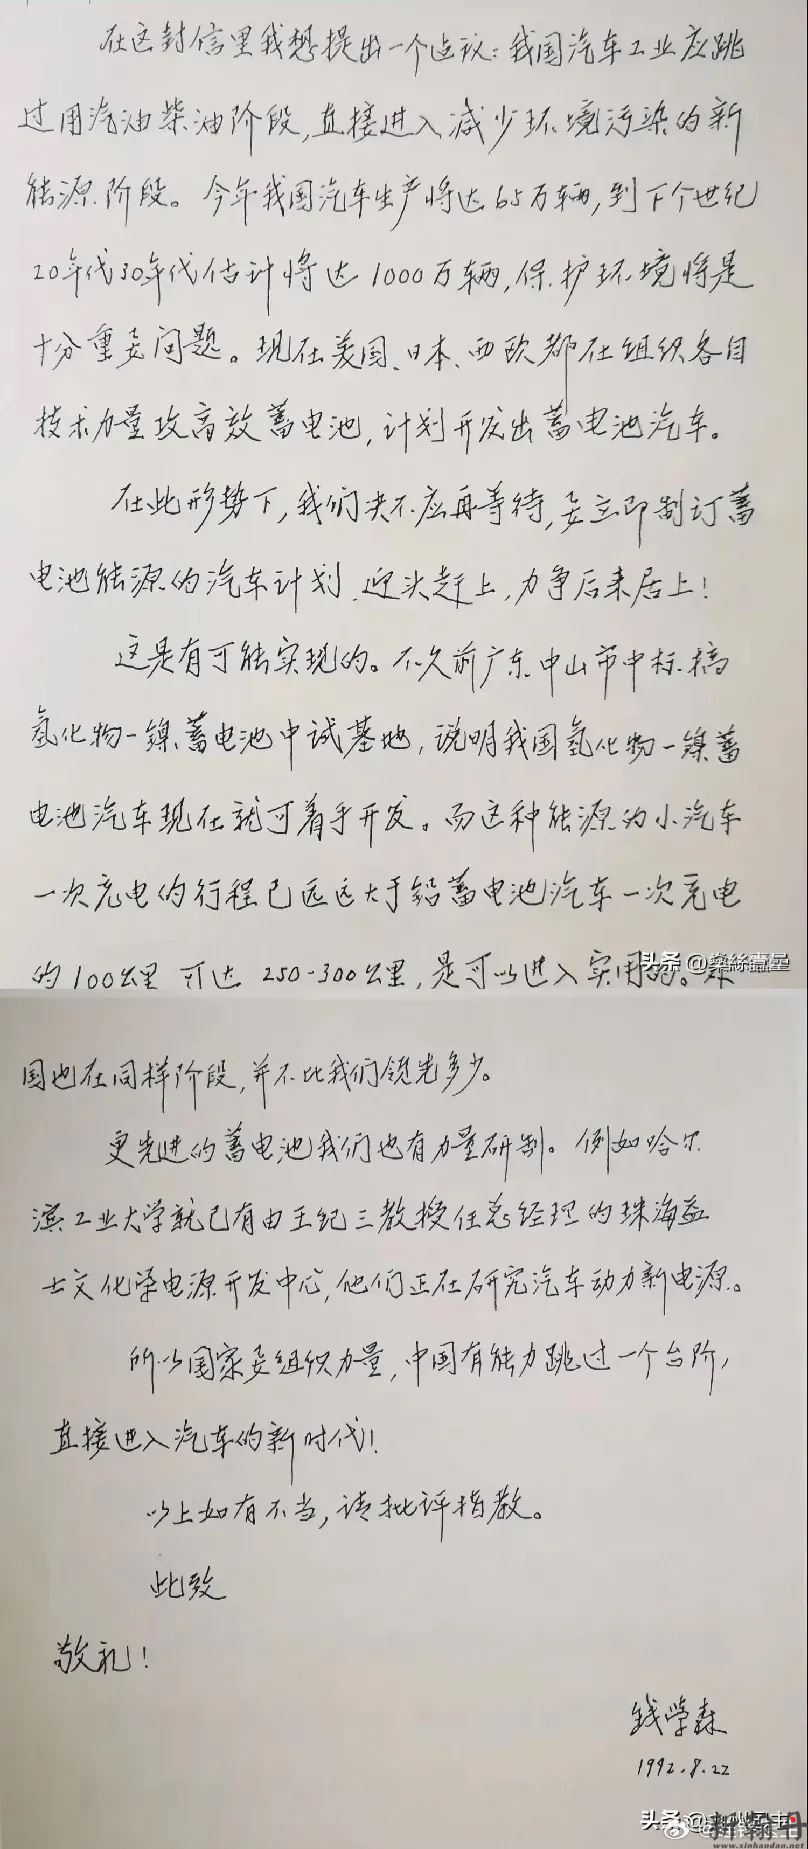 在这封信里我想提出一个建议：我国汽车工业应跳
过用汽油柴油阶段，直接进入减少环境污染的新
能源阶段。今年我国汽车生产将达65万辆，到下个世纪
20年代30年代估计将达1000万辆，保护环境将是
十分重要问题。现在美国、日本、西欧都在组织各自
技术力量攻高效蓄电池，计划开发出蓄电池汽车。
在此形势下，我们决不应再等待，要立即制订蓄
电池能源的汽车计划，迎头赶上，力争后来居上！
这是有可能实现的。不久前广东中山市中标搞
氢化物一镍蓄电池中试基地，说明我国氢化物一镍蓄
电池汽车现在就可着手开发。而这种能源的小汽车
一次充电的行程已远远大于铅蓄电池汽车一次充电
的100公里 可达 250-300公里，是可以进入实用的。
头条 @燊絲壹星
国也在同样阶段，并不比我们领先多少。
更先进的蓄电池我们也有力量研制。例如哈尔
滨工业大学就已有由王纪三教授任总经理的珠海益
士文化学电源开发中心，他们正在研究汽车动力新电源。
所以国家要组织力量，中国有能力跳过一个台阶，
直接进入汽车的新时代！
以上如有不当，请批评指教。
此致
敬礼！
钱学森
1992.8.22
头条 @
新翰丹
www.xinhandan.net